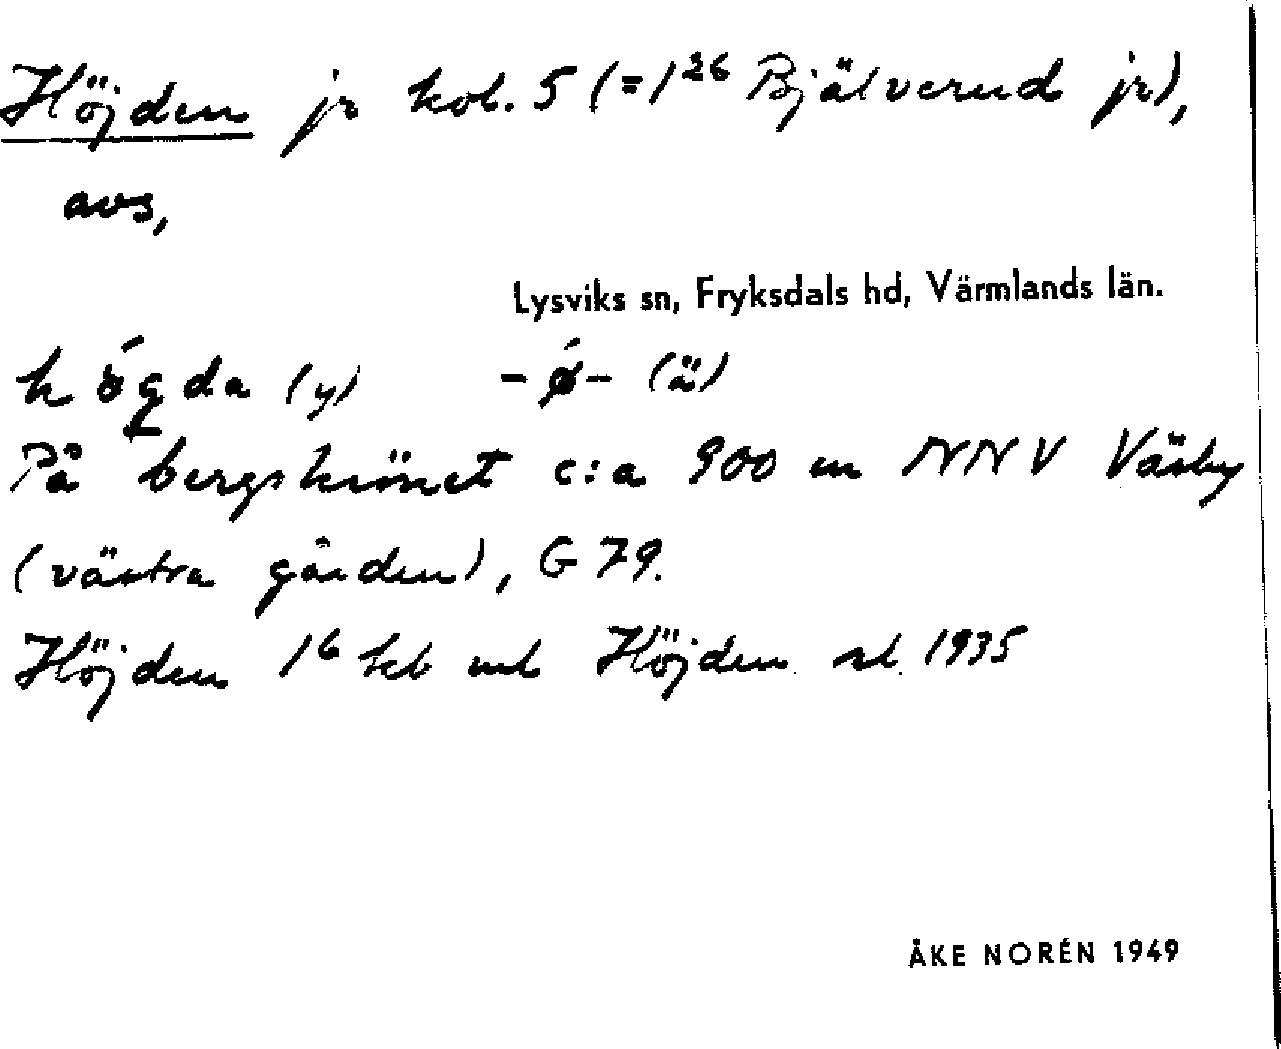 Höjden jr kol. 5 (=1²⁶ Bjälverud jr),
avs,
Lysviks sn, Fryksdals hd, Värmlands län.
högda (y) -ǿ- (ä)
På bergskrönet c:a 900 m NNV Väsby
(västra gården), G 79.
Höjden 1⁶ kb Höjden 1935
ÅKE NORÉN 1949